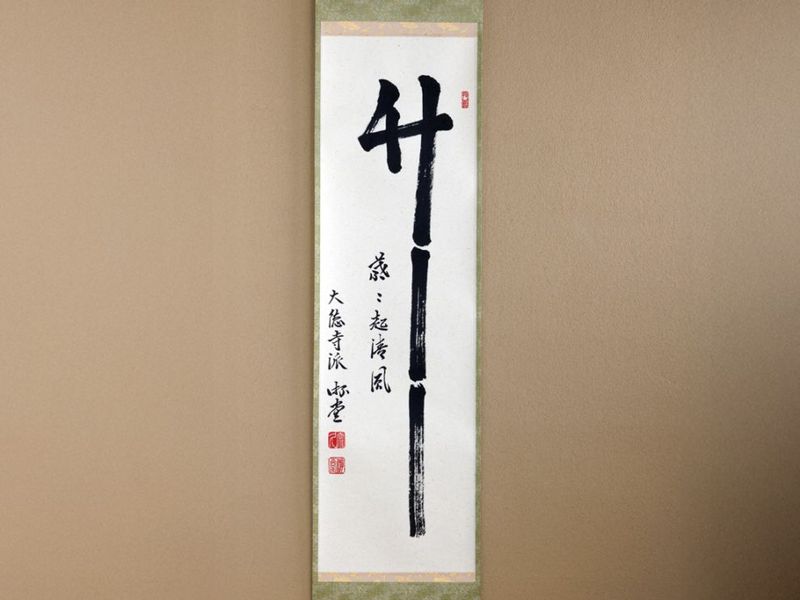 竹
葉々起清風
大徳寺派